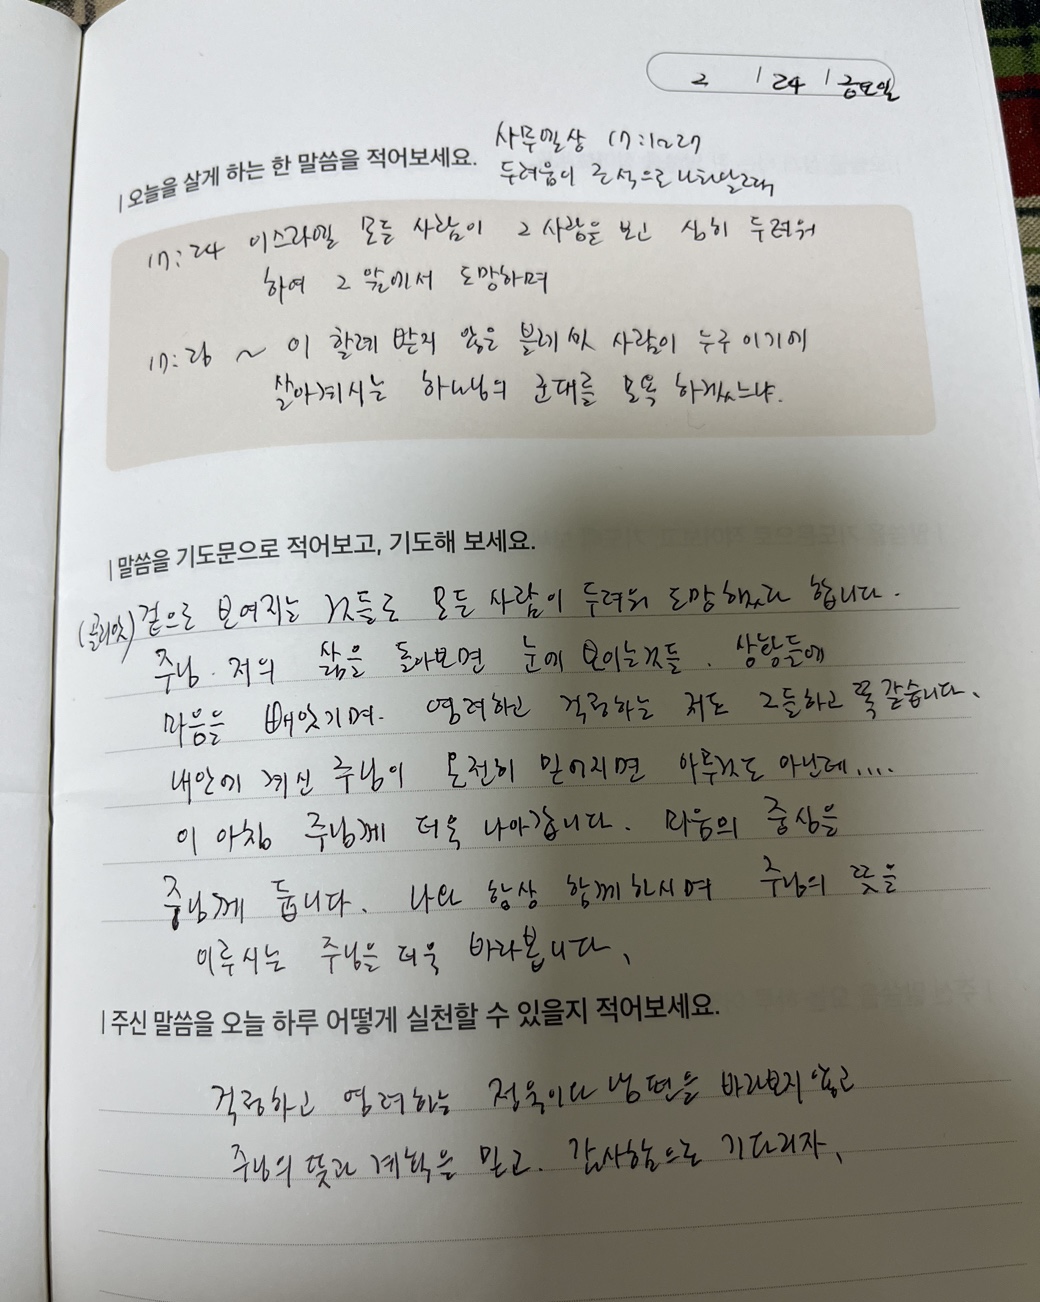 2 / 24 / 금요일
사무엘상 17:12-27
| 오늘을 살게 하는 한 말씀을 적어보세요.
두려움이 은석으로 나타날때
17:24 이스라엘 모든 사람이 그 사람을 보고 심히 두려워
하여 그 앞에서 도망하며
17:26 ~ 이 할례 받지 않은 블레셋 사람이 누구이기에
살아계시는 하나님의 군대를 모욕 하겠느냐.
| 말씀을 기도문으로 적어보고, 기도해 보세요.
(골리앗) 겉으로 보여지는 것들로 모든 사람이 두려워 도망했다 합니다.
주님. 저의 삶을 돌아보면 눈에 보이는것들. 상황들에
마음을 빼앗기며. 염려하고 걱정하는 저도 그들하고 똑같습니다.
내안에 계신 주님이 온전히 믿어지면 아무것도 아닌데....
이 아침 주님께 더욱 나아갑니다. 마음의 중심을
주님께 둡니다. 나와 항상 함께하시며 주님의 뜻을
이루시는 주님을 더욱 바라봅니다.
| 주신 말씀을 오늘 하루 어떻게 실천할 수 있을지 적어보세요.
걱정하고 염려하는 정욱이나 남편을 바라보지 않고
주님의 뜻과 계획을 믿고. 감사함으로 기다리자.